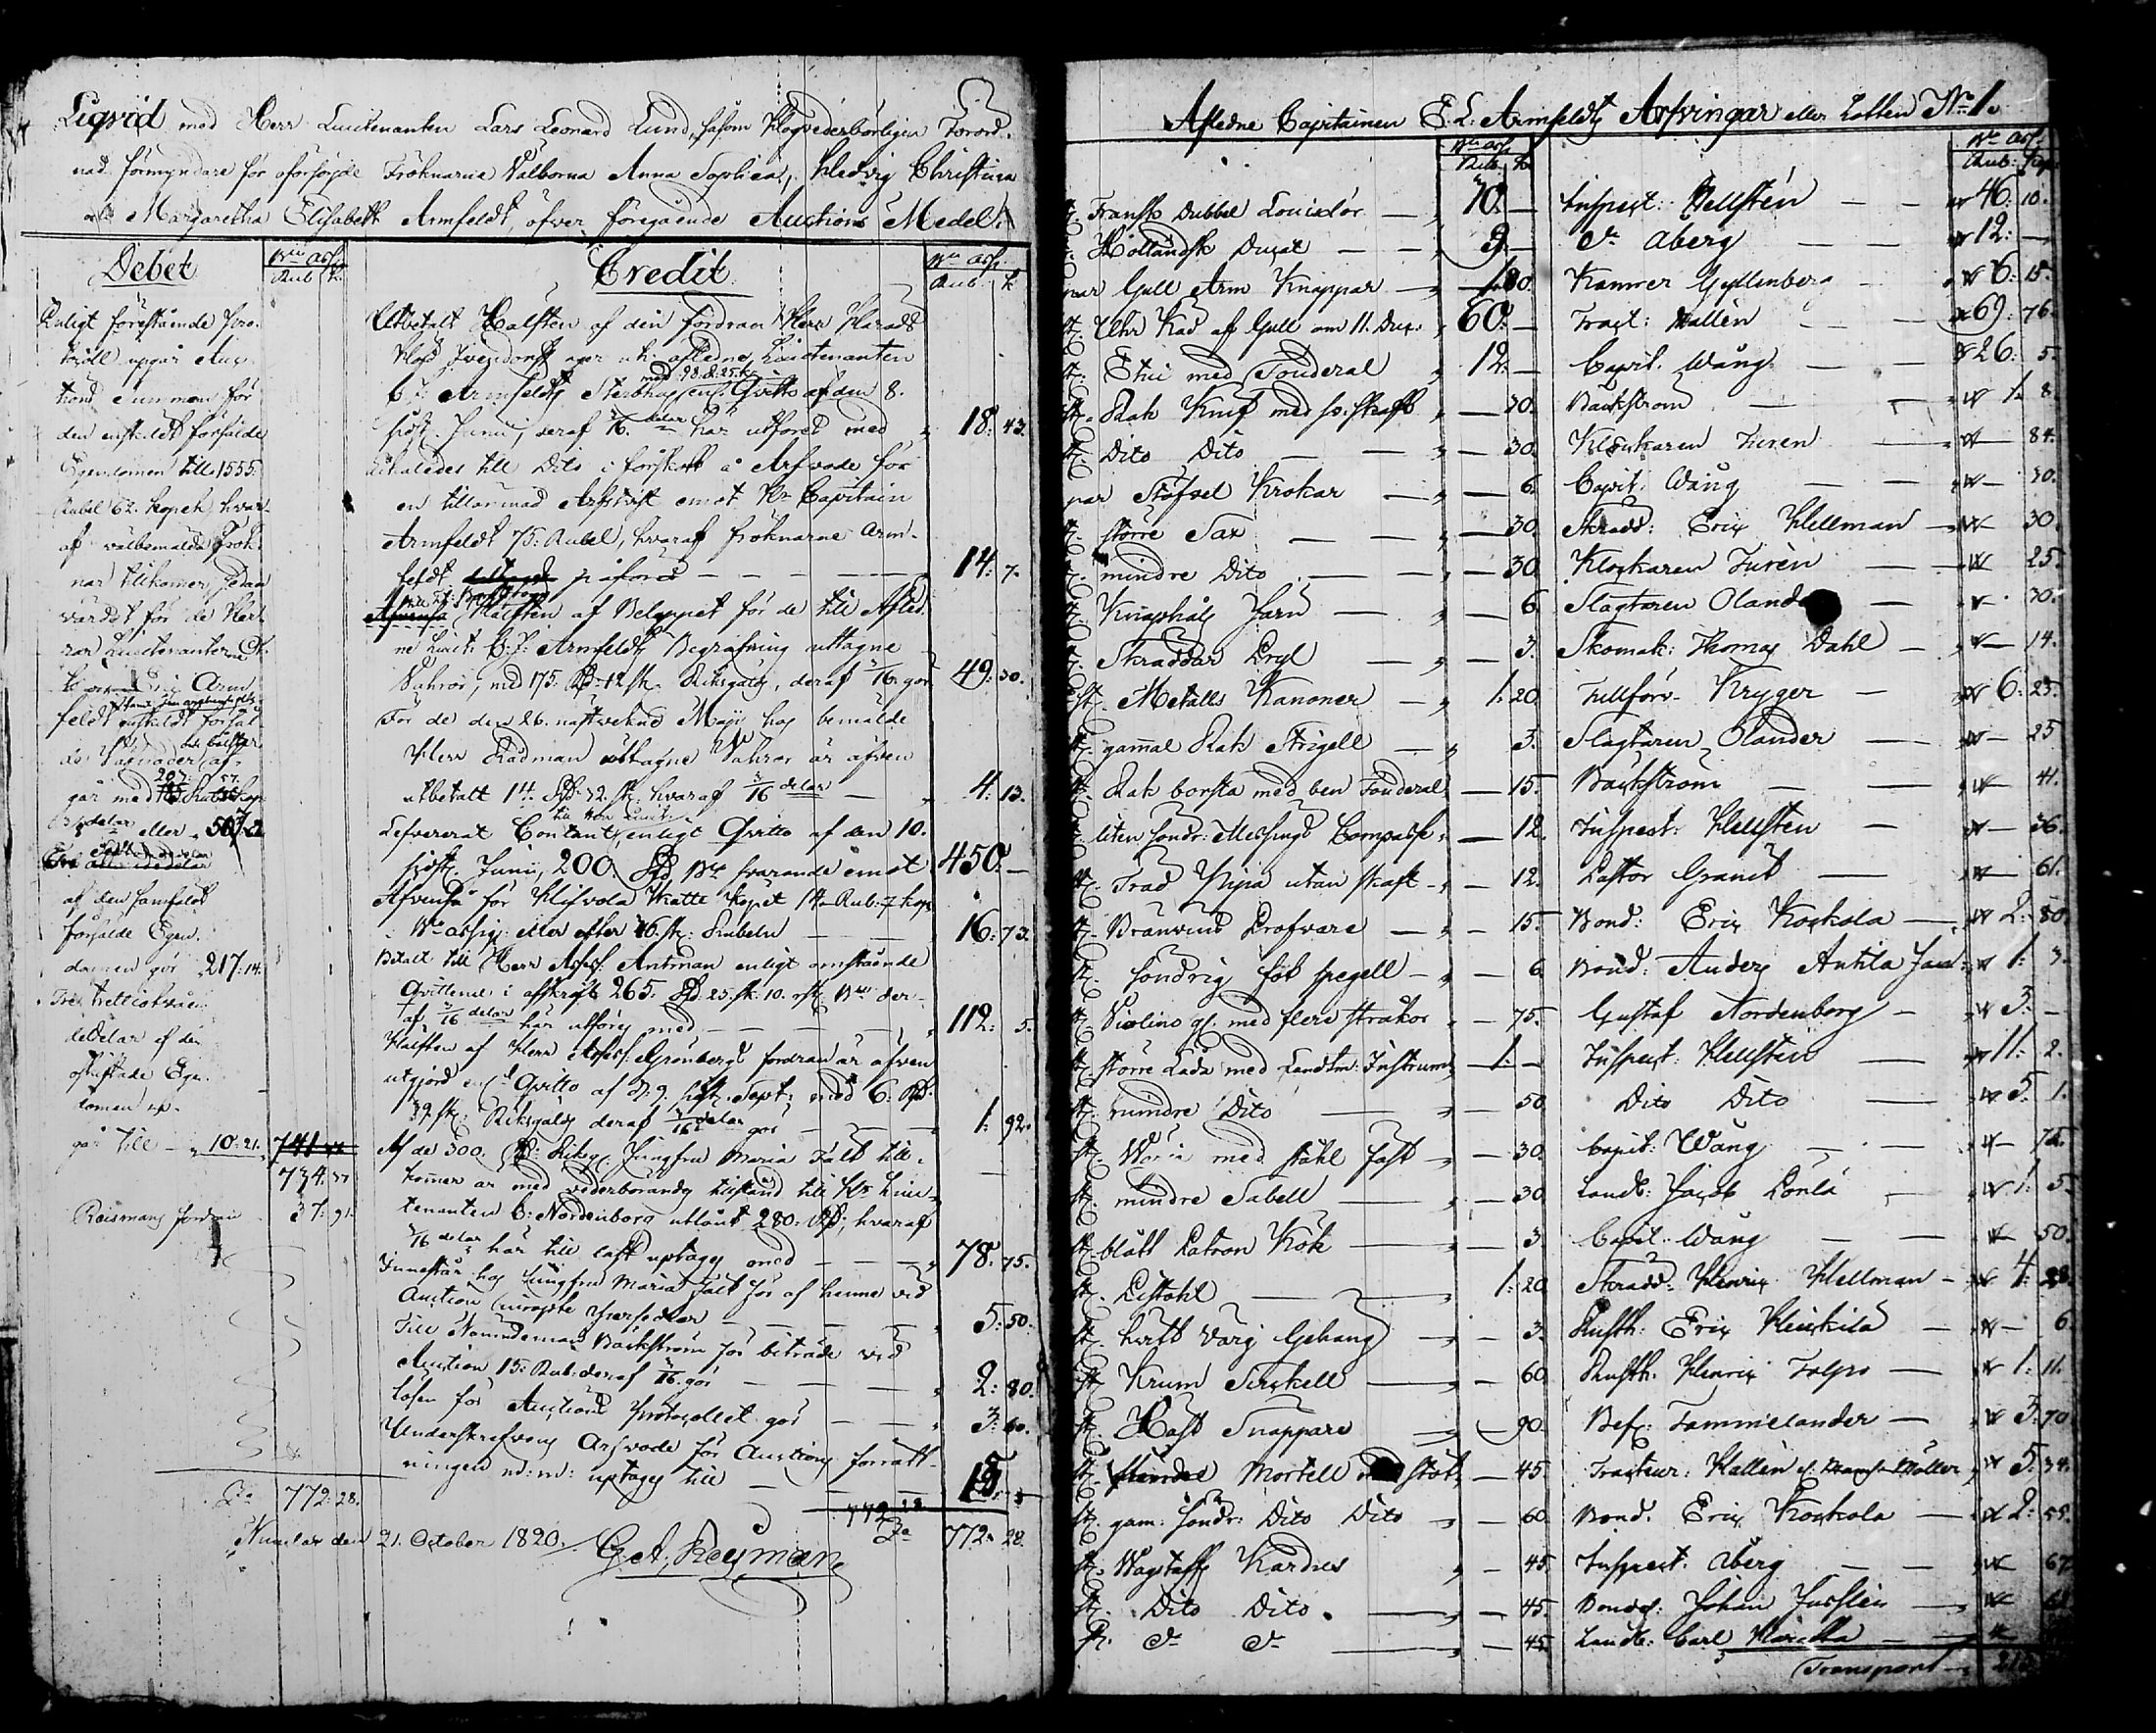 Liqvid med Herr Lieutenanten Lars Leonard Lund, såsom Förord-
nad förmyndare för oförsörgde Fröknarne Valborna Anna Sophia, Hedvig Christina
Margaretha Elisabeth Armfeldt, öfver föregående Auctions Medel.
Debet
Rub. K.
Enligt förestående pro-
tocoll upgår Auc-
tions Summan för
den enskildt försålde
Egendomen till 1555.
Rubel 62. Kopek, hvar-
af välbemälde Frök-
nar tilkommer, sedan
värdet för de Her-
rar Lieutenanterne
Arm-
feldt enskildt försål-
af-
går med
delar eller 507.
af den samfeldt
försålde Egen-
domen gör 217:14.
Tre trettiotvån-
dedelar af den
oskiftade Egen-
domen up-
går till 10:21.
734:37
Reismans fordran 37:91.
Sa 772:28.
Credit
Rub. K.
Utbetalt Hälften af den fordran Herr Härads
ägen uti afledne Lieutenanten
Armfeldts Sterbhus enl. Qvitto af den 8.
sistl. Junii, deraf 3/16 delar här utföres med 18:43.
likaledes till Dito i förskott å Arfvode för
en tillärnad emot Hr Capitain
Armfeldt 75: Rubel, hvaraf fröknarne Arm-
feldt påföres 14:7.
Hälften af Beloppet för de till Afled-
ne Lieut: Armfeldts Begrafning uttagne
Vahror, med 175: Rd 12 sk. Riksgälds, deraf 3/16 gör 49:30.
För de den 26. nästvekne Maji hos bemälde
Herr Rådman uttagne Vahror är äfven
utbetalt 14. Rd: 32. sk. hvaraf 3/16 delar 4:13.
Lefvererat Contant, enligt Qvitto af den 10.
sistl. Junii, 200. Rd Bco svarande emot 450.—
Äfvenså för 14 Rub: 7 kop
Bco assig: eller efter 16. sk: Rubeln 16:73.
Betalt till Herr Assess: Antman enligt omstående
Qvittence i afskrift 265. Rd: 25. sk. 10. rst. Bco der-
af 3/16 delar här utföres med 112: 5.
Hälften af Herr Assess: Grönbergs fordran är äfven
utgjord enl Qvitto af d. 9. sistl. Sept: med 6: Rd:
32. sk: Riksgälds deraf 3/16 delar gör 1:92.
Af de 300. Rd: Riksg. Jungfru Maria Fält till-
kommer är med vederbörandes tillstånd till Hr Lieu-
tenanten C: Nordenborg utlånt 280: Rd; hvaraf
3/16 delar här till last uptages med 78:75.
Innestår hos Jungfru Maria Fält för af henne vid
Auction inropte Persedlar 5:50.
Till Nämndeman Bäckström för biträde vid
Auction 15: Rub: deraf 3/16 gör 2:80.
Lösen för Auctions Protocollet gör 3:60.
Underskrefvens Arfvode för Auctions förrätt-
ningen m: m: uptages till 15
Sa 772:28.
Numlax den 21. October 1820.
G. A. Reisman
Afledne Capitainen E. L. Armfeldts Arfvingar eller Lotten No 1.
Rub. K. Rub: Kop.
Fransk dubbel Louisdor 70.— Inspect: Hellstén 46:10.
Holländsk Ducat 9.— Do Åberg 12:—
par Gull Arm Knappar Kamrer Gyllenberg 6:15.
Uhr Kad af Gull om 11. Duc: 60.— Tract: Hallén 69:76.
Etui med Fouderal 12.— Capit. Wång 26: 5.
Rak Knif med sv. skaft 30. Bäckström 1: 8.
Dito Dito 30. Klockaren Turen 84.
par Stöfvel Krokar 6. Capit. Wång 30.
större Sax 30. Skradd: Eric Hellman 30.
mindre Dito 30. Klockaren Turén 25.
Knapphåls Jern 6. Slagtaren Olander 30.
Skraddar Pryl 3. Skomak: Thomas Dahl 14.
st. Metalls Kanoner 1:20. Tullförv. Kryger 6:25.
gammal Rak Strigell 3. Slagtaren Olander 25
Rak borsta med ben Fouderal 15. Bäckström 41.
liten söndr: Messings Compass 12. Inspect: Hellsten 36.
Träd Pipa utan skaft 12. Pastor Granit 61.
Bränvins Profvare 15. Bond: Eric Kockola 2:80.
söndrig fot spegell 6. Bond: Anders Antila 1: 3.
Violino gl. med flere stråkor 75. Gustaf Nordenborg 3.—
större Låda med Landtm: Instrum: 1.— Inspect: Hellsten 11: 2.
mindre Dito 50. Dito Dito 5: 1.
Värja med ståhl fäst 30. Capit: Wång 75.
mindre Sabell 30. Landb: Jacob 1: 5.
blått Patron Kök 3. Capit: Wång 50.
Pistohl 1:20. Skradd: Henric Hellman 4:
hvitt Värj Gehäng 3. Rusth: Eric Heickilä 6.
Krum Sirckell 60. Rusth. Henric Tolpo 1:11.
Häst Snappare 90. Bef: Tammelander 3:70.
Mortell med stöt 45. Tracteur: Hallén 5:34.
gam: söndr: Dito Dito 60. Bond. Eric Kockola 2:55.
Wagstaffs Kardus 45. Inspect. Åberg 67
Dito Dito 45. Bonde: Johan
Do Do 45. Landb: Carl
Transport